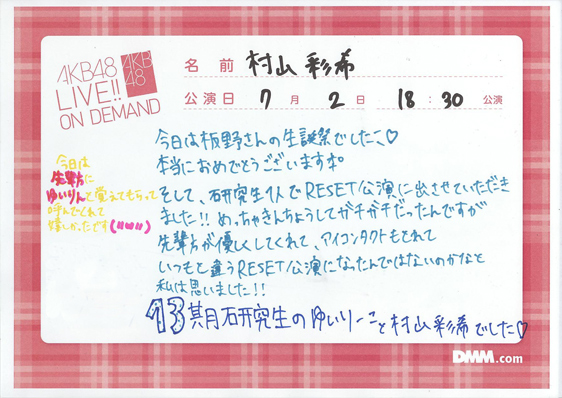 AKB48
LIVE!!
ON DEMAND
AKB
48
名前 村山彩希
公演日 7月2日 18:30公演
今日は板野さんの生誕祭でしたこ♡
本当におめでとうございます
そして、研究生1人でRESET公演に出させていただき
ました!!めっちゃきんちょうしてガチガチだったんですが
先輩方が優しくしてくれて、アイコンタクトもとれて
いつもと違うRESET公演になったんではないのかなと
私は思いました!!
13期研究生のゆいりーこと村山彩希でした♡
今日は
先輩方に
ゆいりんと覚えてもらって
呼んでくれて
嬉しかったです("ω")
DMM.com